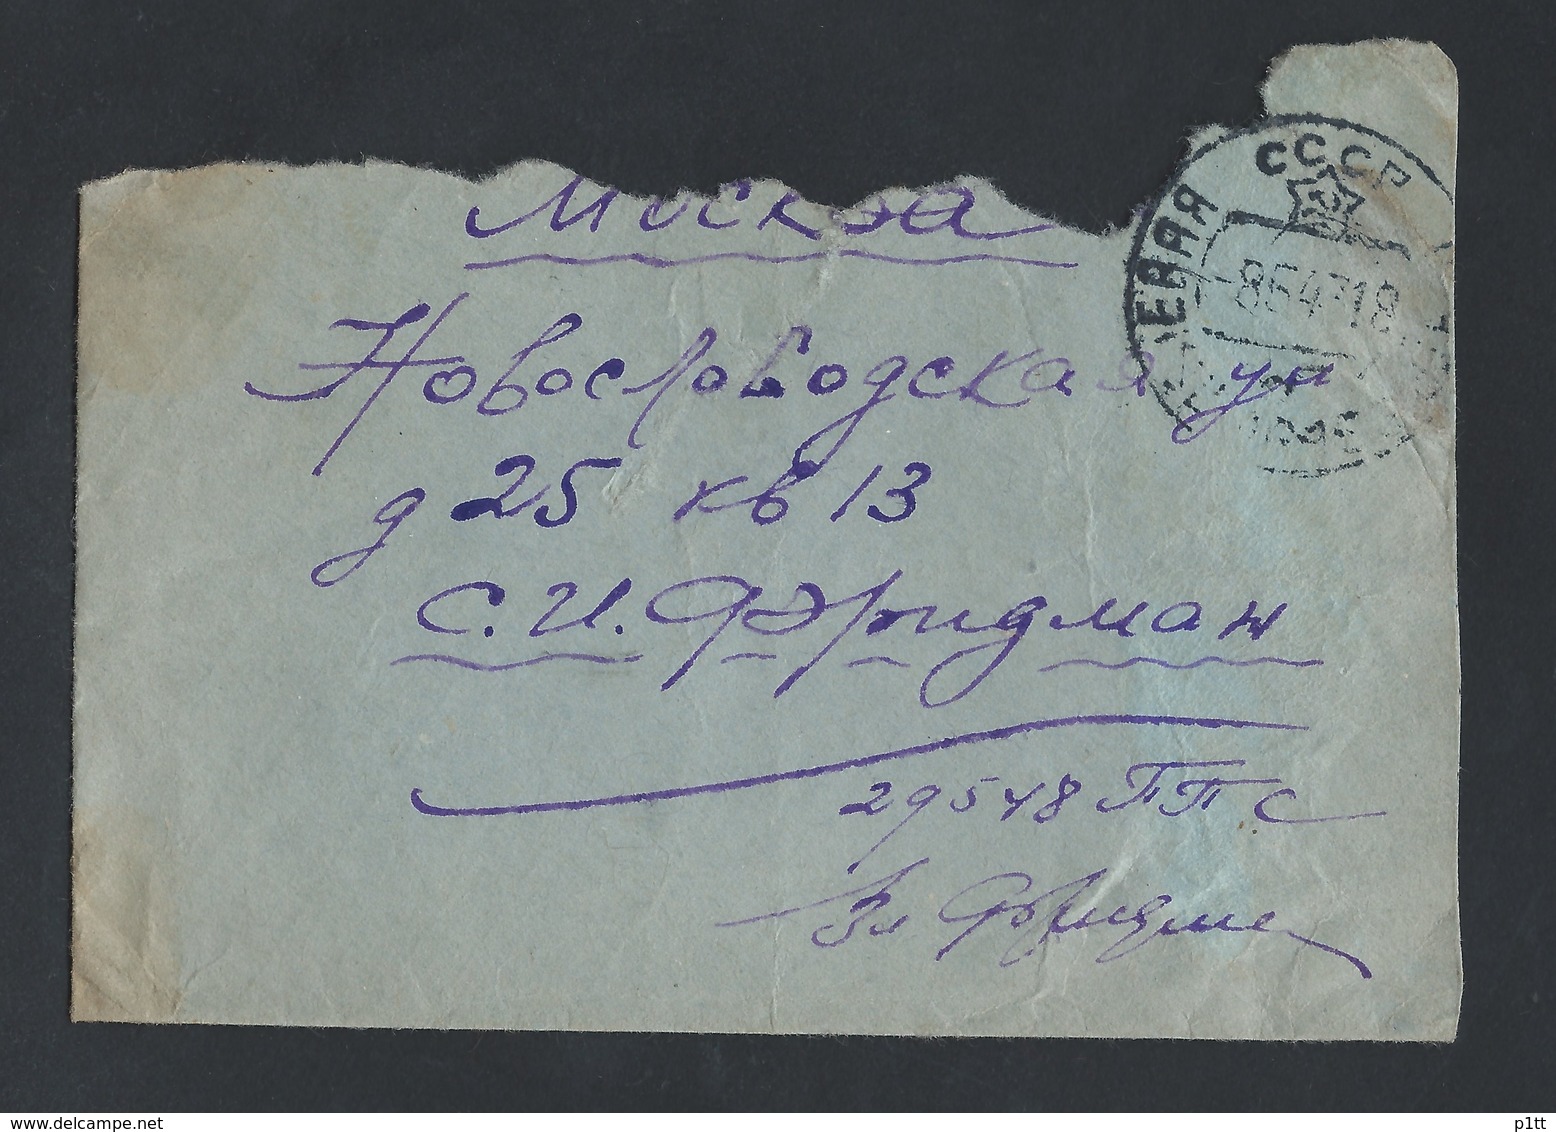 Москва
СССР
ЕВАЯ
-8 5 47 18
Новослободская ул
д 25 кв 13
С. И. Фридман
29548 ПП С
delcampe.net
p1tt